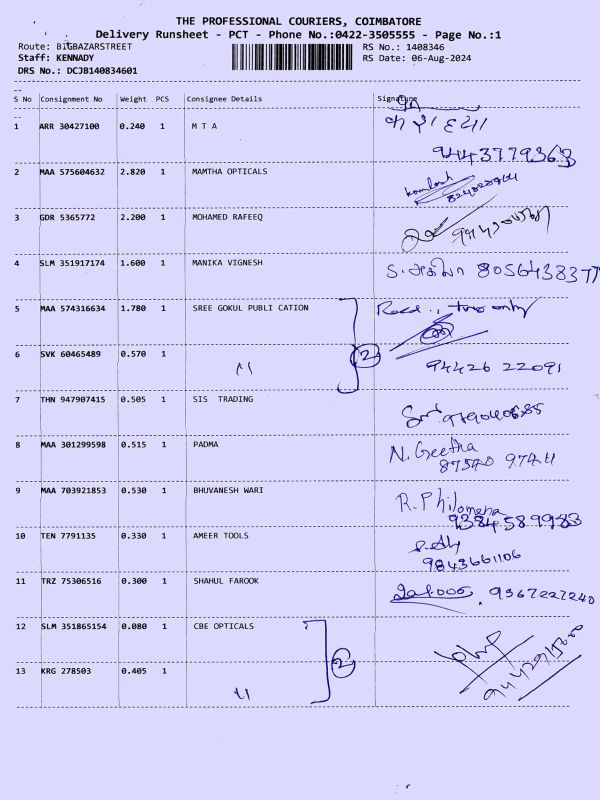 THE PROFESSIONAL COURIERS, COIMBATORE
Delivery Runsheet - PCT - Phone No.:0422-3505555 - Page No.:1
Route: BIGBAZARSTREET RS No.: 1408346
Staff: KENNADY RS Date: 06-Aug-2024
DRS No.: DCJB140834601
S No Consignment No Weight PCS Consignee Details Signature
1 ARR 30427100 0.240 1 M T A
9443779363
2 MAA 575604632 2.820 1 MAMTHA OPTICALS
3 GDR 5365772 2.200 1 MOHAMED RAFEEQ
4 SLM 351917174 1.600 1 MANIKA VIGNESH 8056438377
5 MAA 574316634 1.780 1 SREE GOKUL PUBLI CATION Recd., two only
6 SVK 60465489 0.570 1 〃 2 94426 22091
7 THN 947907415 0.505 1 SIS TRADING
8 MAA 301299598 0.515 1 PADMA N. Geetha
9 MAA 703921853 0.530 1 BHUVANESH WARI R. Philomena
9384589983
10 TEN 7791135 0.330 1 AMEER TOOLS
9843661106
11 TRZ 75306516 0.300 1 SHAHUL FAROOK 9367227240
12 SLM 351865154 0.080 1 CBE OPTICALS
2
13 KRG 278503 0.405 1 〃